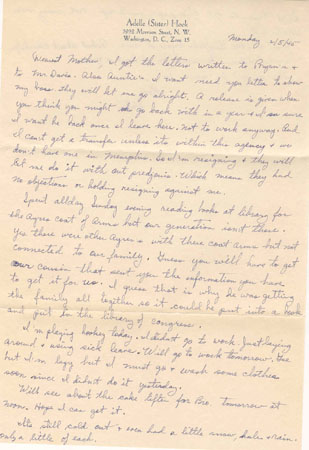 Adelle (Sister) Hook
Washington, D. C., Zone 15
Monday
Dearest Mother, I got the letters written to
to Mr Davis. Also Auntie's. I wont need you letter to show
my boss. They will let me go alright. A release is given when
you think you might go back with in a year + I'm sure
I wont be back once I leave here. Not to work anyway. And
I can't get a transfer unless its within the agency + we
don't have one in Memphis. So I'm resigning + they will
let me do it with out Which means they had
no objections or holding resigning against me.
Spent allday Sunday evening reading books at library for
the Agree coat of Arms but our generation isn't there.
Yes there were other Agrees with there coat arms but not
connected to our familly. Guess you will have to get
our cousin that sent you the information you have
to get it for us. I guess that is why he was getting
the family all together so it could be put into a book
and put in the library of congress.
I'm playing hookey today. I didn't go to work. Just laying
around + using sick leave. Will go to work tomorrow, tho
but I'm lazy but I must go + wash some clothes
soon since I didn't do it yesterday.
Will see about the cake lifter for Bro. tomorrow at
noon. Hope I can get it.
Its still cold out + even had a little snow, hale + rain.
only a little of each.